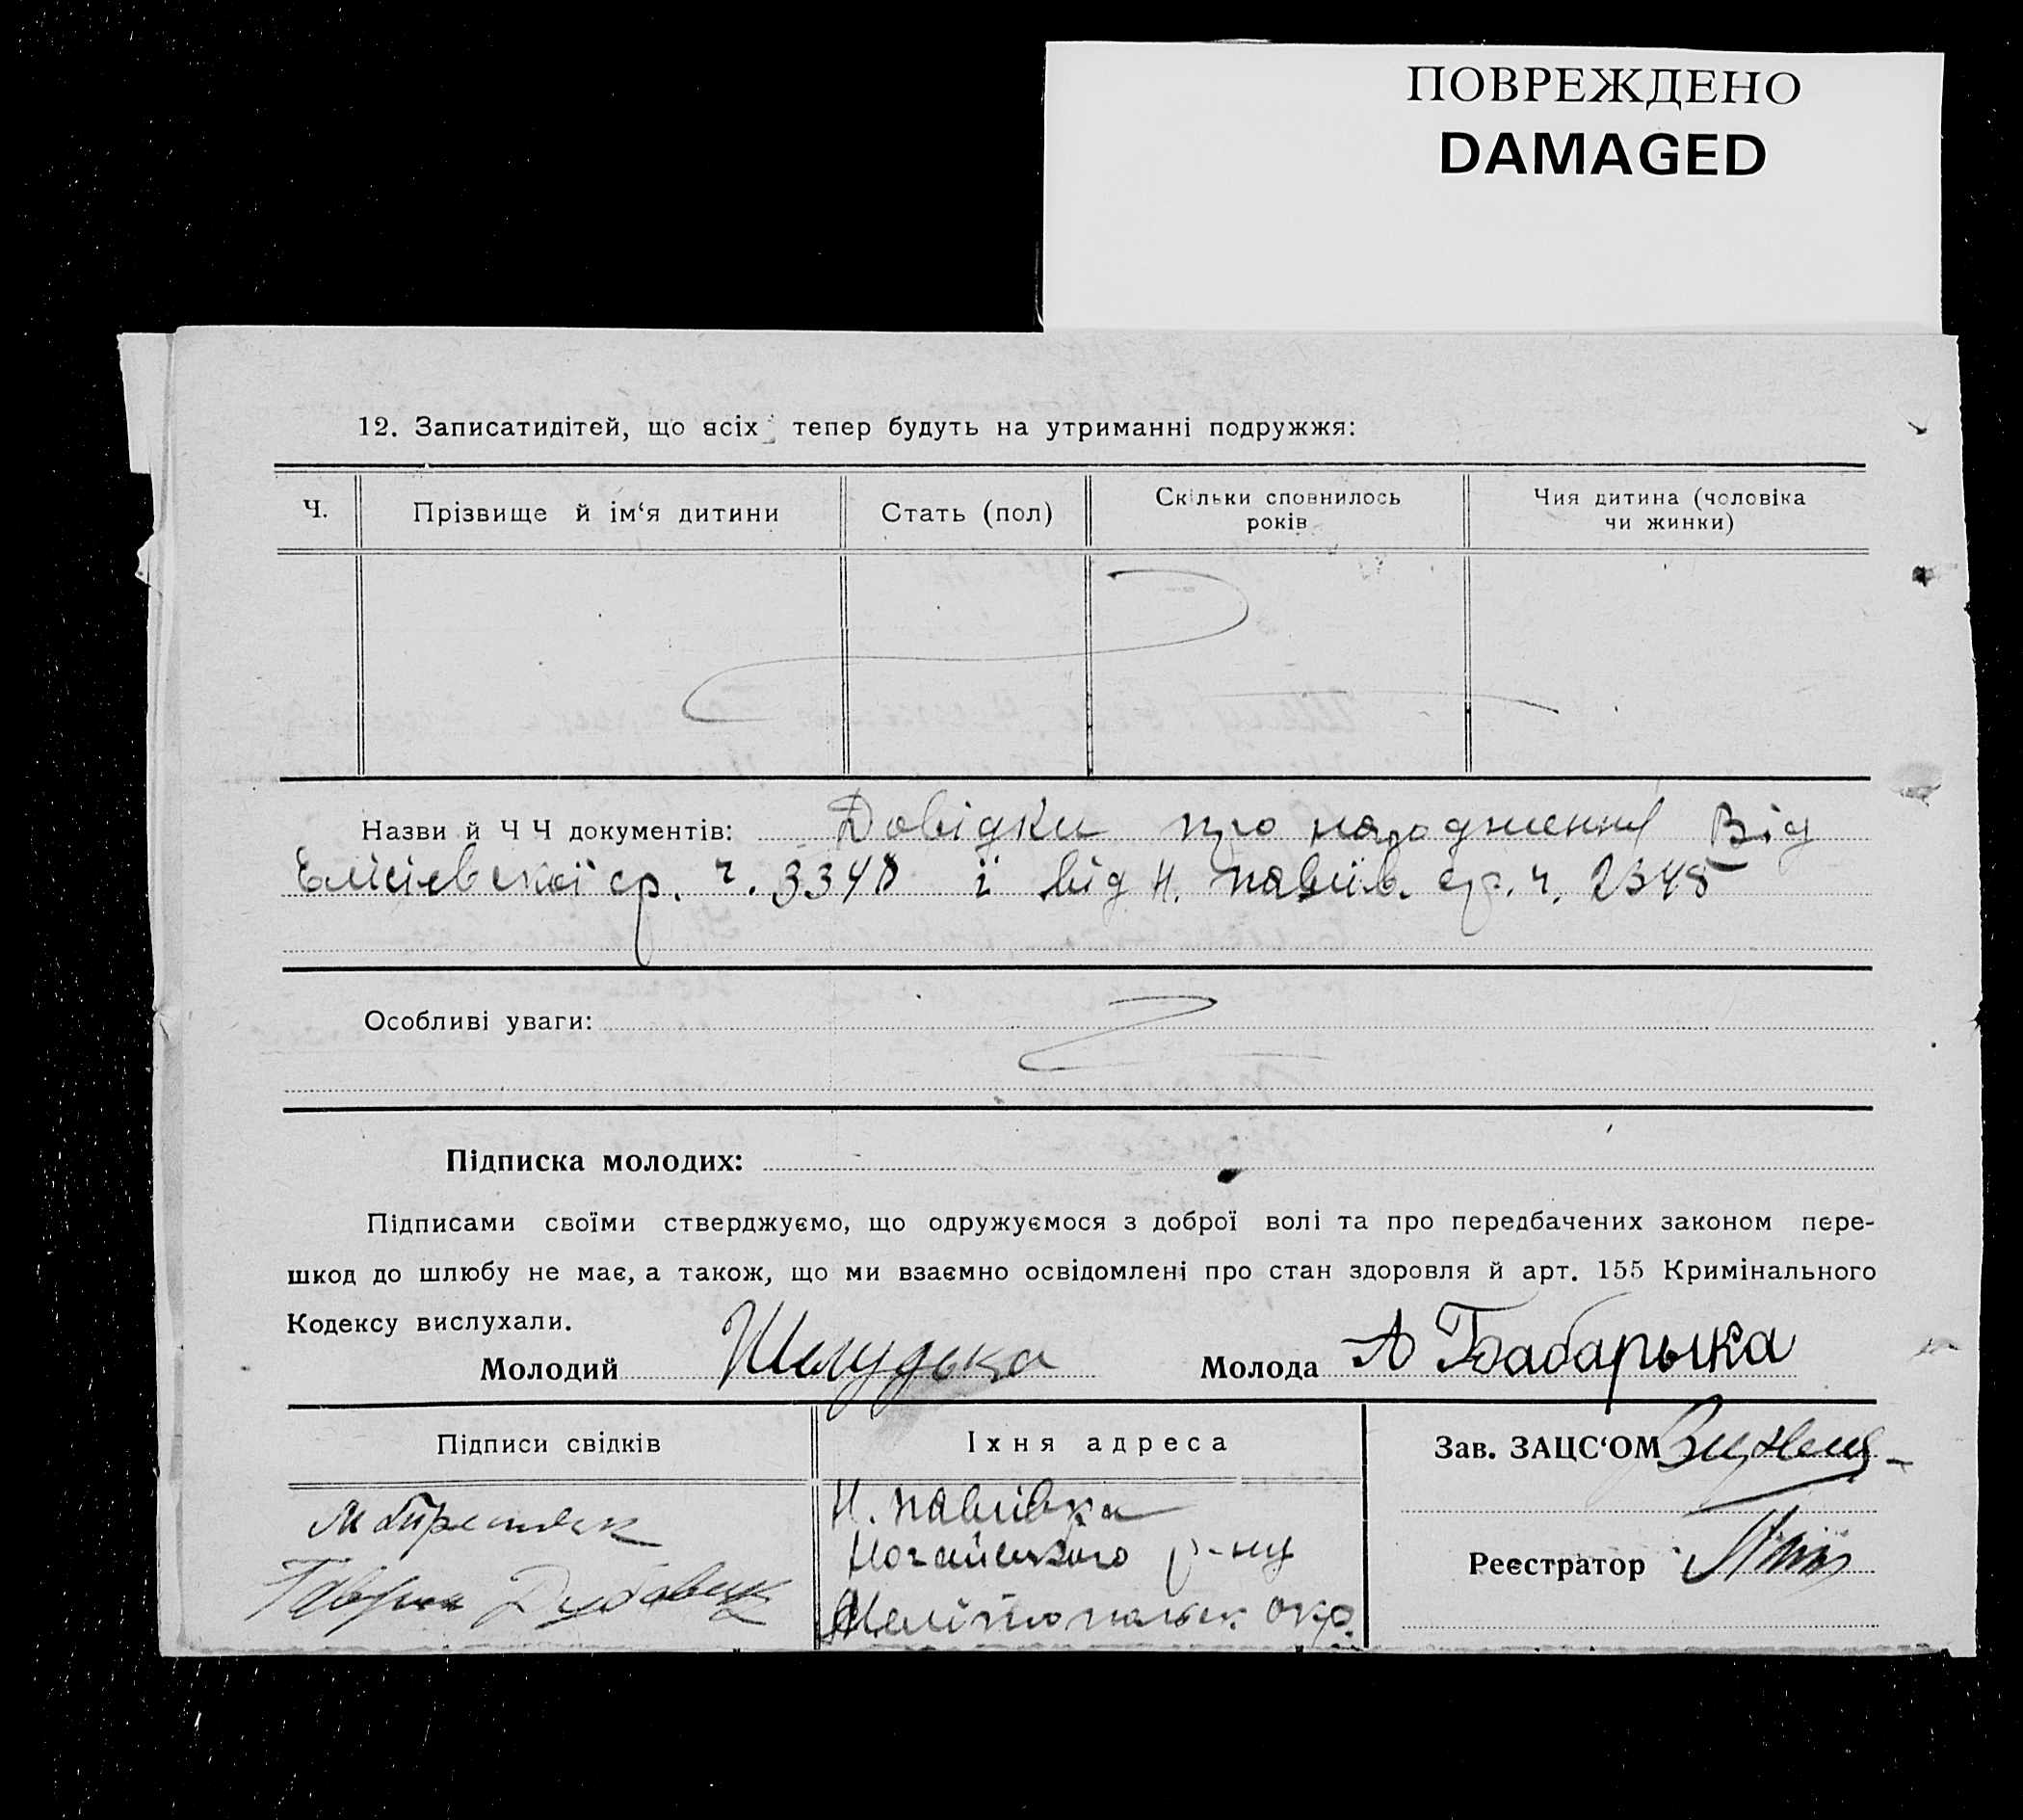 ПОВРЕЖДЕНО
DAMAGED
12. Записатидітей, що всіх тепер будуть на утриманні подружжя:
Ч.
Прізвище й ім‘я дитини
Стать (пол)
Скільки сповнилось
років
Чия дитина (чоловіка
чи жинки)
Назви й ЧЧ документів: Довідки про народження Від
Елісієвської ср. ч. 3348 і від Н. павлів. ср. ч. 2348
Особливі уваги:
Підписка молодих:
Підписами своїми стверджуємо, що одружуємося з доброї волі та про передбачених законом пере-
шкод до шлюбу не має, а також, що ми взаємно освідомлені про стан здоровля й арт. 155 Кримінального
Кодексу вислухали.
Молодий Шелудько Молода А Бабарыка
Підписи свідків
Їхня адреса
Зав. ЗАЦС‘ОМ
Н. павлівка
Ногайського р-ну
Мелітопольск. окр.
Реєстратор